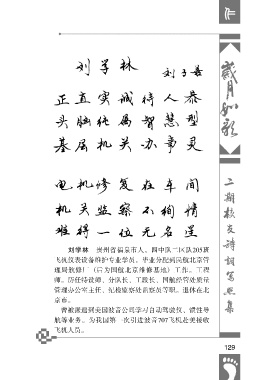 刘学林
刘子善
正直实诚待人恭
头脑纯属智慧型
基层机关办事灵
电机修复在车间
机关监察不徇情
难得一位无名星
刘学林 贵州省福泉市人。四中队二区队205班
飞机仪表设备维护专业学员。毕业分配到民航北京管
理局航修厂（后为国航北京维修基地）工作。工程
师。历任特设师、分队长、工段长、国航经管处质量
管理办公室主任、纪检监察处监察员等职。退休在北
京市。
曾被派遣到美国波音公司学习自动驾驶仪、惯性导
航等业务。为我国第一次引进波音707飞机赴美接收
飞机人员。
作
岁月如歌
二期校友诗词写照集
129